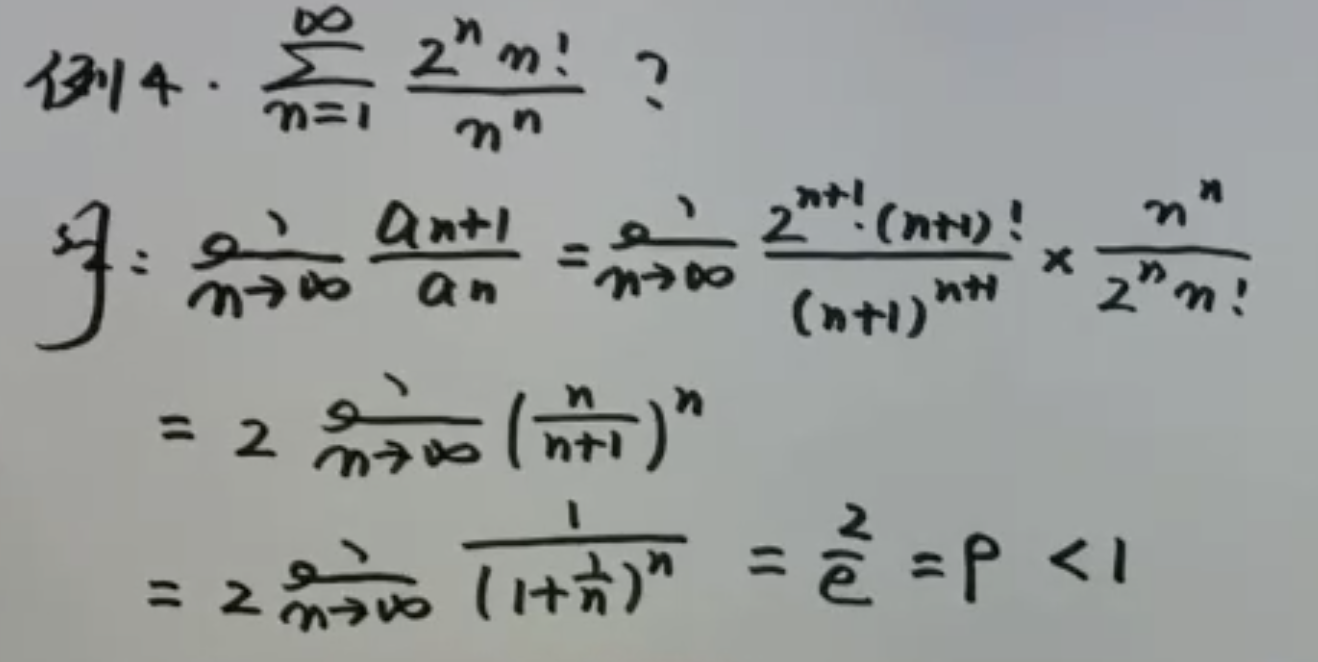 例4. \sum_{n=1}^{\infty} \frac{2^n n!}{n^n} ?
解: \lim_{n→∞} \frac{a_{n+1}}{a_n} = \lim_{n→∞} \frac{2^{n+1}·(n+1)!}{(n+1)^{n+1}} × \frac{n^n}{2^n n!}
= 2 \lim_{n→∞} (\frac{n}{n+1})^n
= 2 \lim_{n→∞} \frac{1}{(1+\frac{1}{n})^n} = \frac{2}{e} = ρ < 1